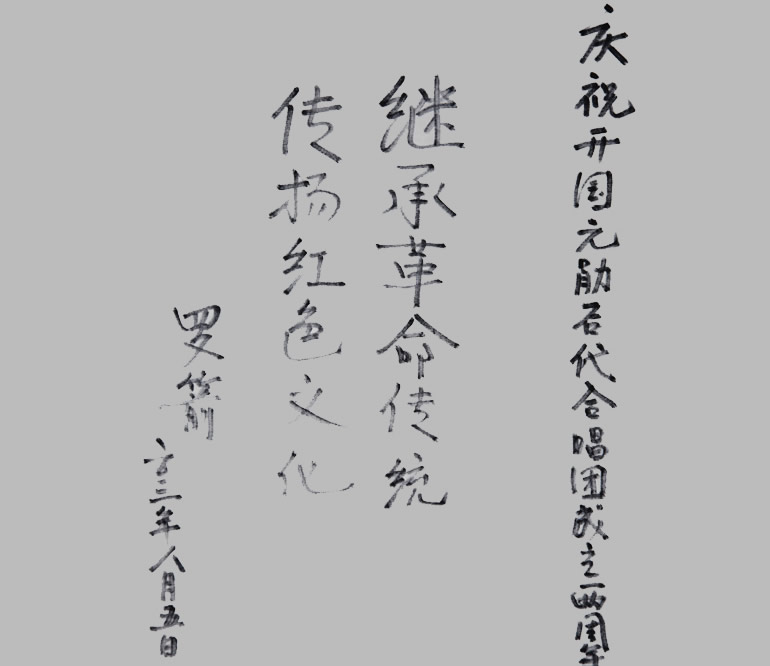 庆祝开国元勋后代合唱团成立两周年
继承革命传统
传扬红色文化
罗箭
三年八月五日